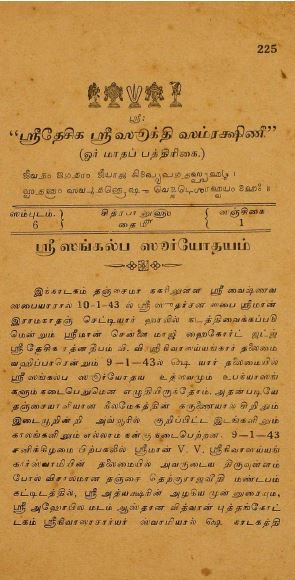 225
ஸ்ரீ:
“ஸ்ரீதேசிக ஸ்ரீஸூக்தி ஸம்ரக்ஷிணி”
(ஓர் மாதப் பத்திரிகை.)
ஸம்புடம். சித்ரபானுஹு ஸஞ்சிகை
6 தை 1
ஸ்ரீ ஸங்கல்ப ஸூர்யோதயம்
இக்நாடகம் தஞ்சைமா நகரிலுள்ள ஸ்ரீ வைஷ்ணவ
ஸபையாரால் 10-1-43 ல் ஸ்ரீ ஸுதர்சன ஸபை ஸ்ரீமான்
இராமநாதஞ் செட்டியார் ஹாலில் நடத்திவைக்கப்படு
மென்றும் ஸ்ரீமான் சென்னை மாஜி ஹைகோர்ட் ஜட்ஜ்
ஸ்ரீ தேசிகரத்ன தீபம் வி. வி. ஸ்ரீநிவாஸய்யங்கார் தலைமை
வஹிப்பாரென்றும் 9-1-43ல் ஷை யார் தலைமையில்
ஸ்ரீ ஸங்கல்ப ஸூர்யோதய உத்ஸவமும் உபந்யாஸங்
களும் நடைபெறுமென எழுதியிருந்தோம். அதன்படியே
தஞ்சைமாமணியான நீலமேகத்தின் கருணையால் சிறிதும்
இடையூறின்றி அவ்வூரில் குறிப்பிட்ட இடங்களிலும்
காலங்களிலும் எல்லாம் நன்கு நடைபெற்றன. 9-1-43
சனிக்கிழமை பிற்பகலில் ஸ்ரீமான் V. V. ஸ்ரீநிவாஸய்யங்
கார்ஸ்வாமியின் தலைமையில் அவருடைய திருவுள்ளம்
போல் விசாலமான தஞ்சை தெற்குராஜவீதி மண்டபம்
கட்டிடத்தில், ஸ்ரீ அத்யக்ஷரின் அழகிய முன்னுரையும்,
ஸ்ரீ அஹோபில மடம் ஆஸ்தான வித்வான் புத்தங்கோட்
டகம் ஸ்ரீநிவாஸாசார்யர் ஸ்வாமியால் ஷை நாடகத்தி